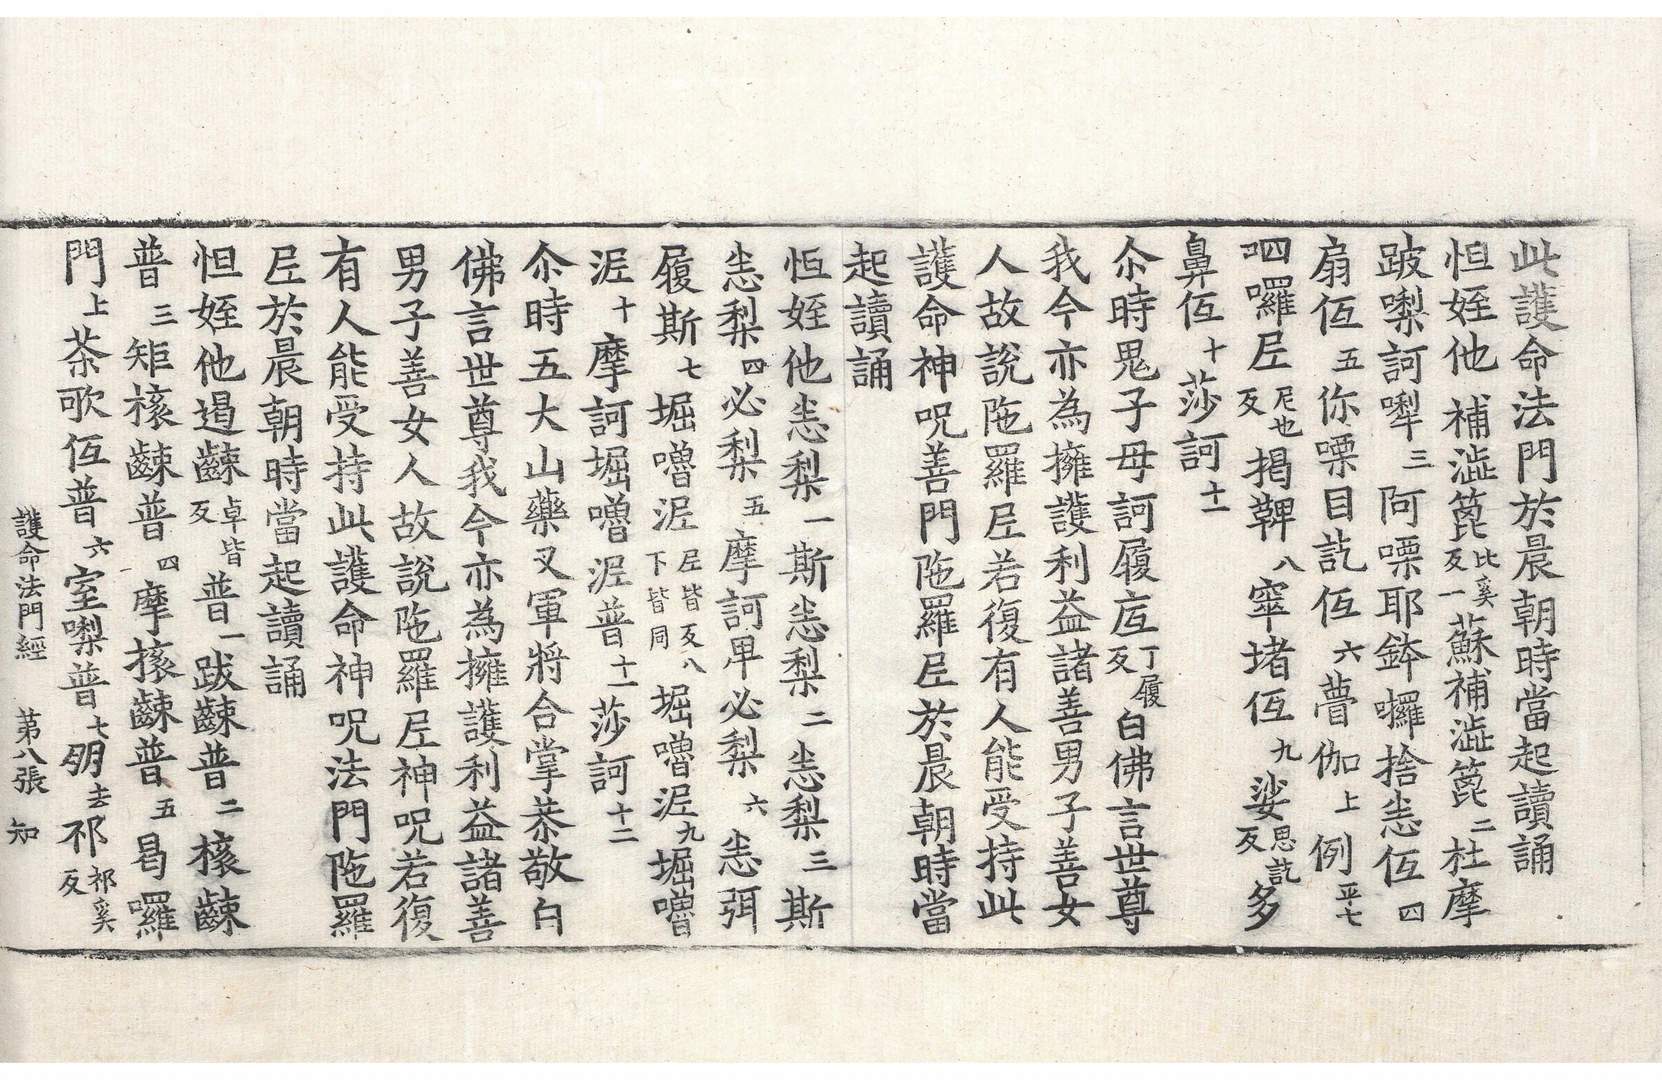 此護命法門於晨朝時當起讀誦
怛姪他補澁篦比奚反一蘇補澁篦二杜摩
跛㗚訶犂三阿㗚耶鉢囉捨恙仾四
扇仾五你㗚目訖仾六瞢伽上例平七
呬囉𡰱尼也反揭鞞八窣堵仾九娑思訖反多
鼻仾十莎訶十一
尒時鬼子母訶履㡳丁履反白佛言世尊
我今亦為擁護利益諸善男子善女
人故說陁羅𡰱若復有人能受持此
護命神呪善門陁羅𡰱於晨朝時當
起讀誦
怛姪他恙梨一斯恙梨二恙梨三斯
恙梨四必梨五摩訶卑必梨六恙弭
履斯七堀嚕泥𡰱皆反八下皆同堀嚕泥九堀嚕
泥十摩訶堀嚕泥普十一莎訶十二
尒時五大山藥叉軍將合掌恭敬白
佛言世尊我今亦為擁護利益諸善
男子善女人故說陁羅𡰱神呪若復
有人能受持此護命神呪法門陁羅
𡰱於晨朝時當起讀誦
怛姪他遏齼卓皆反普一跋齼普二榱齼
普三矩榱齼普四摩榱齼普五曷囉
門上茶歌仾普六室㗚普七朙去祁祁奚反
護命法門經　第八張　知